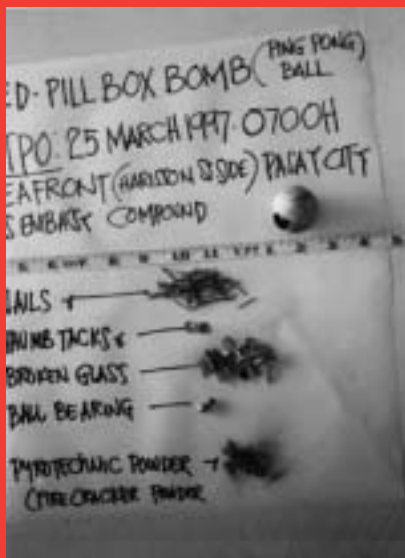 ED-PILL BOX BOMB (PING PONG)
BALL
TPO: 25 MARCH 1997. 0700H
EAFRONT (HARISON ST SIDE) PASAY CITY
S EMBASSY COMPOUND
AILS
HUMB TACKS
BROKEN GLASS
BALL BEARING
PYROTECHNIC POWDER
(FIRECRACKER POWDER